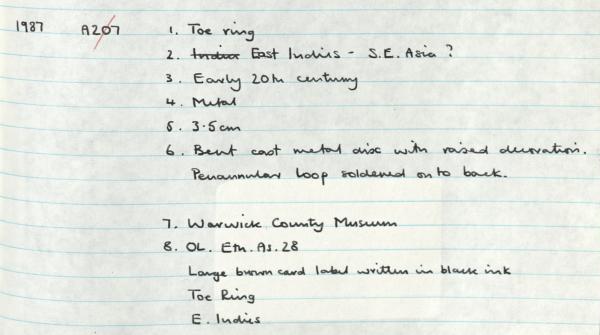 1987 A207 1. Toe ring
2. India East Indies - S.E. Asia ?
3. Early 20th century
4. Metal
5. 3.5cm
6. Bent cast metal disc with raised decoration.
Penannular loop soldered on to back.
7. Warwick County Museum
8. OL. Eth. As. 28
Large brown card label written in black ink
Toe Ring
E. Indies